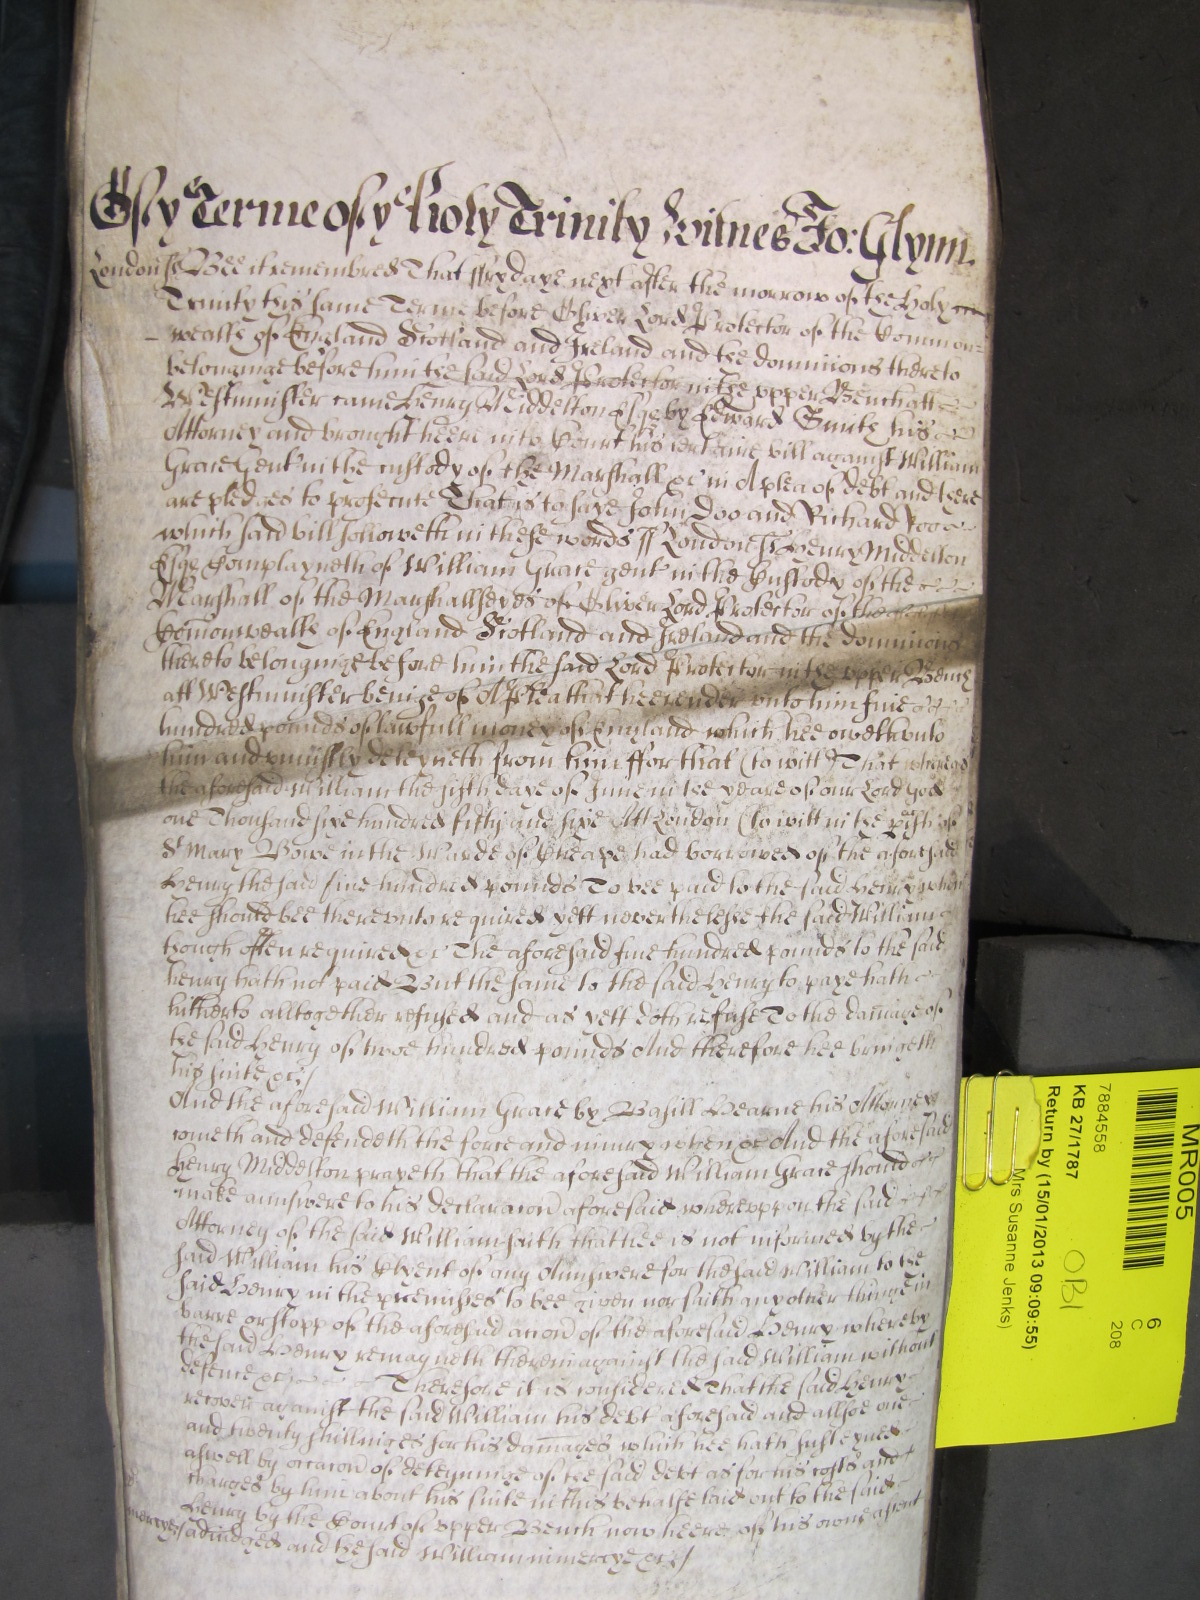 Of ye Terme of ye holy Trinity Witnes Jo: Glynn
London ss Bee it remembred That ffrydaye next after the morrow of the Holy
Trinity this same Terme before Oliver Lord Protector of the Common=
wealth of England Scotland and Ireland and the dominions thereto
belonginge before him the said Lord Protector in the upper Bench att
Westminster came Henry Middelton Esqr by Edward Smith his
Attorney and brought heere into Court his certaine bill against William
Grace gent in the custody of the Marshall &c in A plea of debt and there
are pledges to prosecute That is to saye John Doo and Richard Roo
which said bill followeth in these words ss London ss Henry Middelton
Esqr Complayneth of William Grace gent in the Custody of the
Marshall of the Marshallseyes of Oliver Lord Protector of the
Comonwealth of England Scotland and Ireland and the dominions
thereto belonginge before him the said Lord Protector in the upper Bench
att Westminster beinge of A Plea that hee render unto him five
hundred pounds of lawfull money of England which hee oweth unto
him and uniustly deteyneth from him ffor that (to witt) That whereas
the aforesaid William the fifth daye of June in the yeare of our Lord God
one Thousand sixe hundred fifty and sixe Att London (to witt in the pish of
St Mary Bowe in the Warde of Cheape had borrowed of the aforesaid
Henry the said five hundred pounds To bee paid to the said Henry when
hee should bee thereunto required yett neverthelesse the said William
though often required &c The aforesaid five hundred pounds to the said
Henry hath not paid But the same to the said Henry to paye hath
hitherto alltogether refused and as yett doth refuse To the damage of
the said Henry of twoe hundred pounds And therefore hee bringeth
his suite &c
And the aforesaid William Grace by Basill Hearne his Attorney
cometh and defendeth the force and iniury when &c And the aforesaid
Henry Middelton prayeth that the aforesaid William Grace should
make aunswere to his declaracon aforesaid whereuppon the said
Attorney of the said William saith that hee is not informed by the
said William his Clyent of any Aunswere for the said William to the
said Henry in the premisses to bee given nor saith any other thinge in
barre or stopp of the aforesaid accon of the aforesaid Henry whereby
the said Henry remayneth therein against the said William without
defence &c Therefore it is considered That the said Henry
recover against the said William his debt aforesaid and allsoe one
and twenty shillinges for his damages which hee hath susteyned
aswell by occacon of deteyninge of the said debt as for his costs and
charges by him about his suite in this behalfe laid out to the said
Henry by the Court of upper Bench now heere of his owne assent
mercye adiudged and the said William in mercye &c
MR005
6
C
208
7884558
KB 27/1787
OBI
Return by (15/01/2013 09:09:55)
Mrs Susanne Jenks)